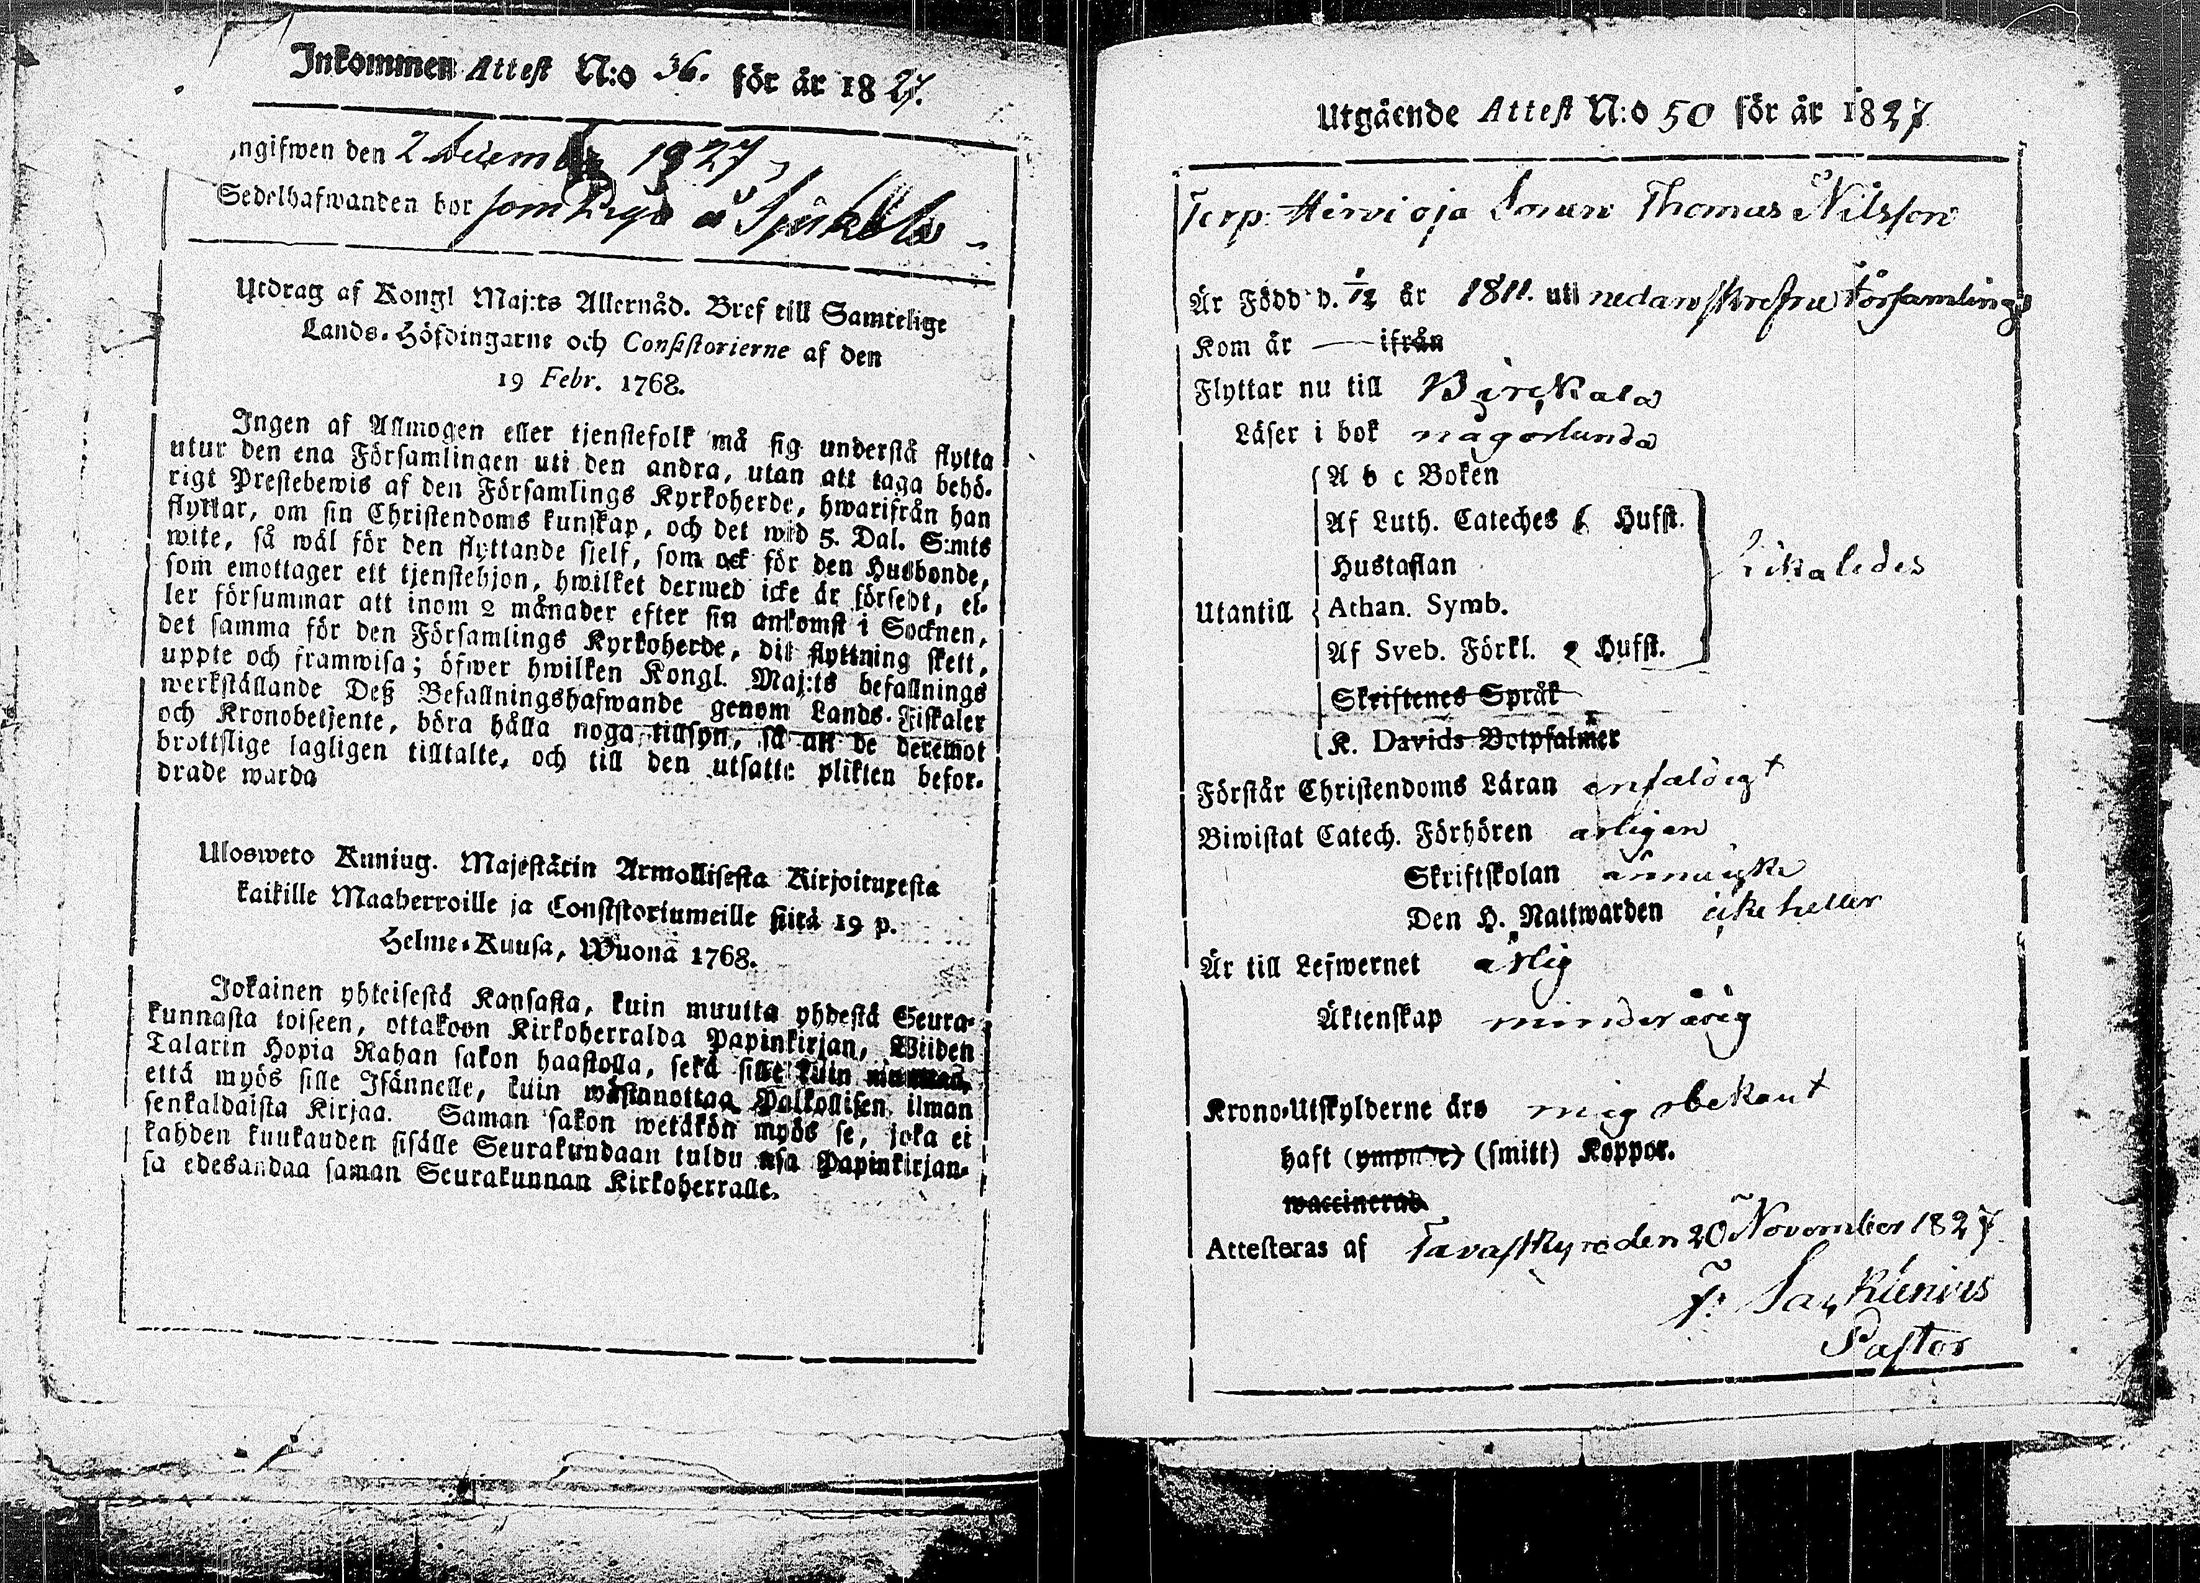 Inkommen Attest N:o 36. för år 1827.
ngifwen den 2 December 1827,
Sedelhafwanden bor som å
Utdrag af Kongl Maj:ts Allernåd. Bref till Samtelige
Lands-Höfdingarne och Consistorierne af den
19 Febr. 1768.
Ingen af Allmogen eller tjenstefolk må sig understå flytta
utur den ena Församlingen uti den andra, utan att taga behö-
rigt Prestebewis af den Församlings Kyrkoherde, hwarifrån han
flyttar, om sin Christendoms kunskap, och det wid 5. Dal. S:mts
wite, så wäl för den flyttande sjelf, som ock för den Husbonde,
som emottager ett tjenstehjon, hwilket dermed icke är försedt, el-
ler försummar att inom 2 månader efter sin ankomst i Socknen,
det samma för den Församlings Kyrkoherde, dit flyttning skett,
uppte och framwisa; öfwer hwilken Kongl. Maj:ts befallnings
werkställande Deß Befallningshafwande genom Lands-Fiskaler
och Kronobetjente, böra hålla noga tillsyn, så att de deremot
brottslige lagligen tilltalte, och till den utsatte plikten befor-
drade warda
Uloswето Kuniug. Majestätin Armollisesta Kirjoituxesta
kaikille Maaherroille ja Consistoriumeille siitä 19 p.
Helme-Kuusa, Wuonä 1768.
Jokainen yhteisestä Kansasta, kuin muutta yhdestä Seura-
kunnasta toiseen, ottakoon Kirkoherralda Papinkirjan, Wiiden
Talarin Hopia Rahan sakon haastolla, sekä sille kuin muuttaa,
että myös sille Isännelle, kuin wastanottaa Palkollisen ilman
senkaldaista Kirjaa. Saman sakon wetäkön myös se, joka ei
kahden kuukauden sisälle Seurakundaan tuldu nsa Papinkirjan-
sa edesandaa saman Seurakunnan Kirkoherralle.
Utgående Attest N:o 50 för år 1827
Torp. Hirvioja Sonen Thomas Nilsson
Är Född d. 1/12 år 1811. uti nedanskrefne Församling
Kom år — ifrån
Flyttar nu till Birckala
Läser i bok någorlunda
A b c Boken
Af Luth. Cateches 6 Hufst.
Hustaflan
Likaledes
Utantill Athan. Symb.
Af Sveb. Förkl. 2 Hufst.
Skriftenes Språk
K. Davids Botpsalmer
Förstår Christendoms Läran enfaldigt
Biwistat Catech. Förhören årligen
Skriftskolan ännu icke
Den H. Nattwarden icke heller
Är till Lefwernet ärlig
Äktenskap minderårig
Krono-Utskylderne äro mig obekant
haft (ympade) (smitt) Koppor.
waccinerad
Attesteras af Tavastkyro den 20 November 1827.
Pastor